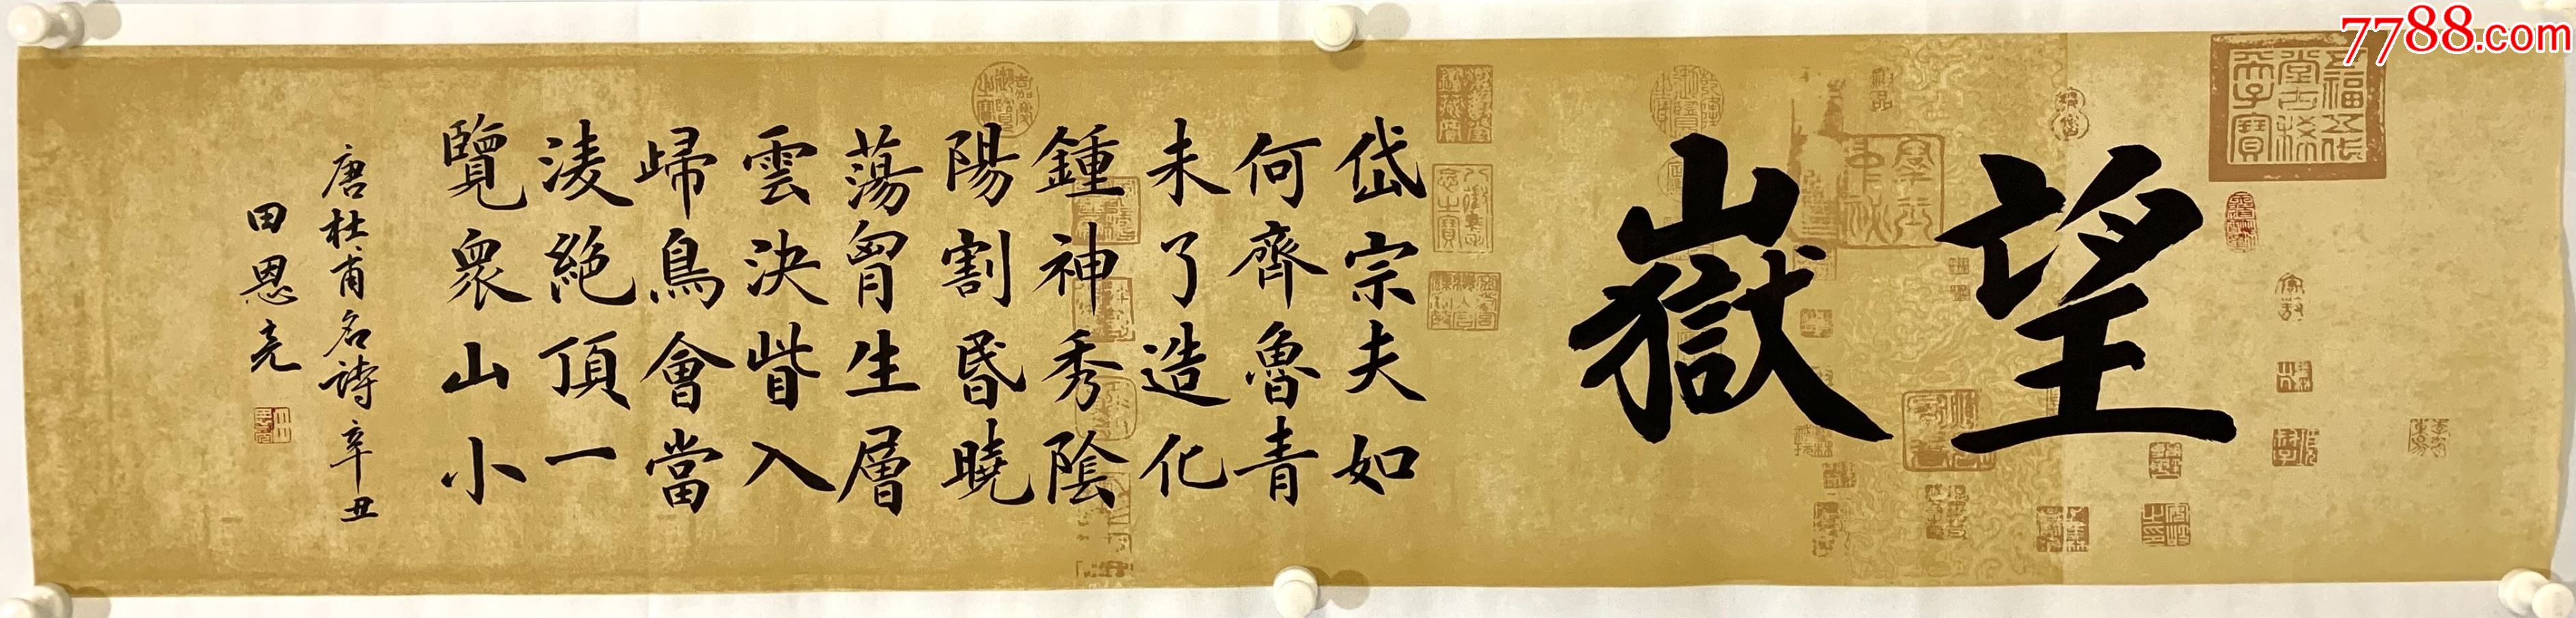 望嶽
岱宗夫如
何齊魯青
未了造化
鍾神秀陰
陽割昏曉
蕩胷生層
雲決眥入
歸鳥會當
淩絕頂一
覽衆山小
唐杜甫名詩辛丑
田恩亮
7788.com